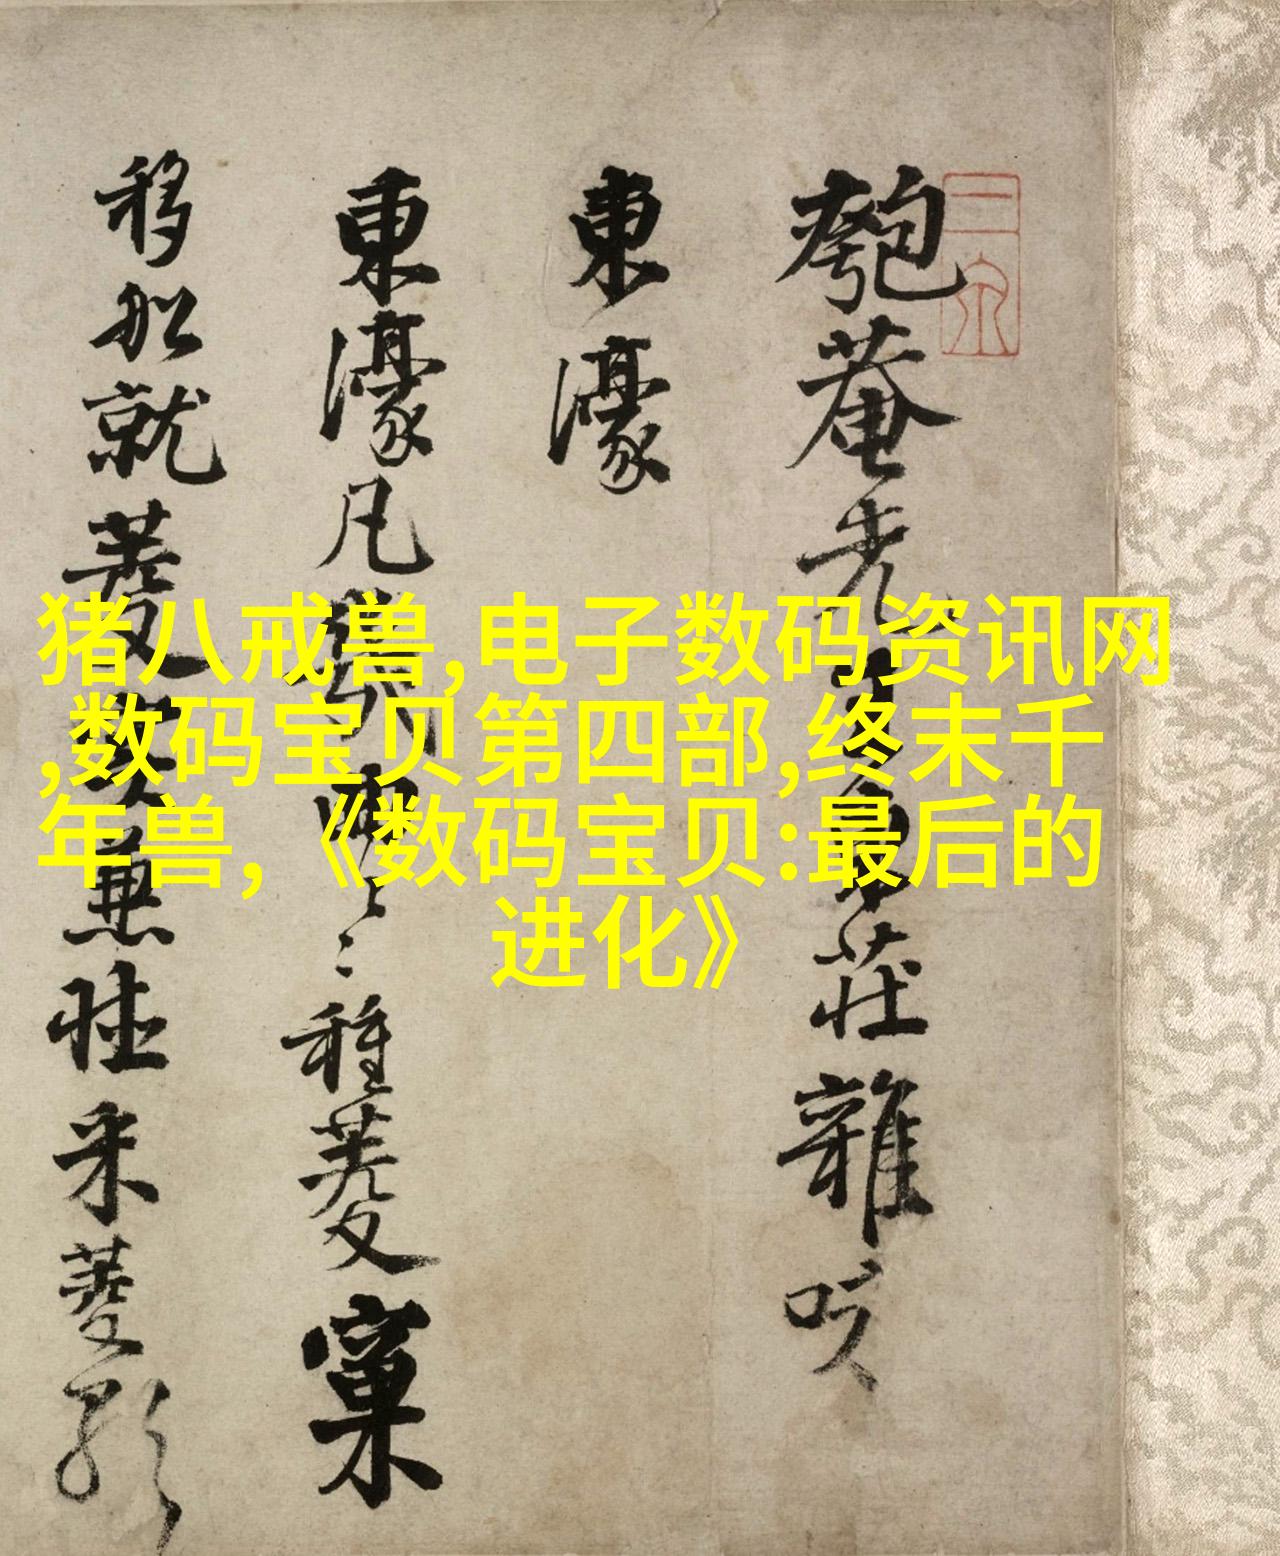 猪八戒兽,电子数码资讯网
,数码宝贝第四部,终末千
年兽,《数码宝贝:最后的
进化》
匏菴先 莊雜咏
東濠
東濠凡 種菱窠
移船就菱 兼 采菱